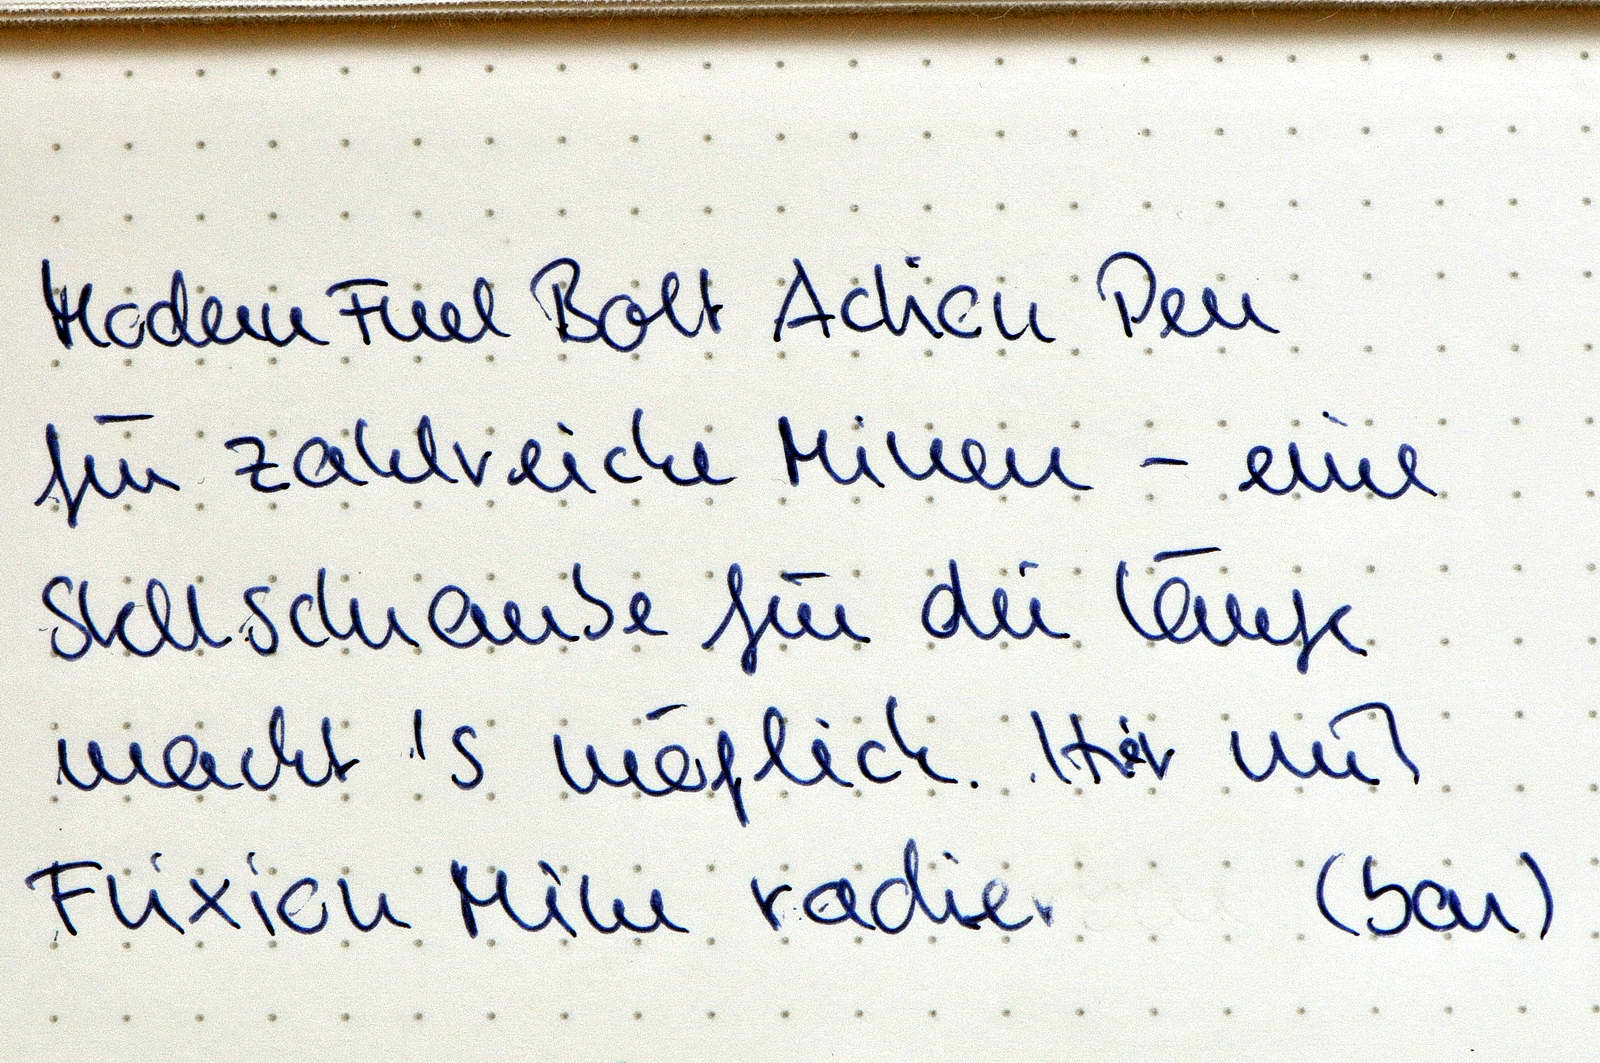 Modern Fuel Bolt Action Pen
für zahlreiche Minen – eine
Stellschraube für die Länge
macht's möglich. Hier mit
Frixion Mine radier (bar)